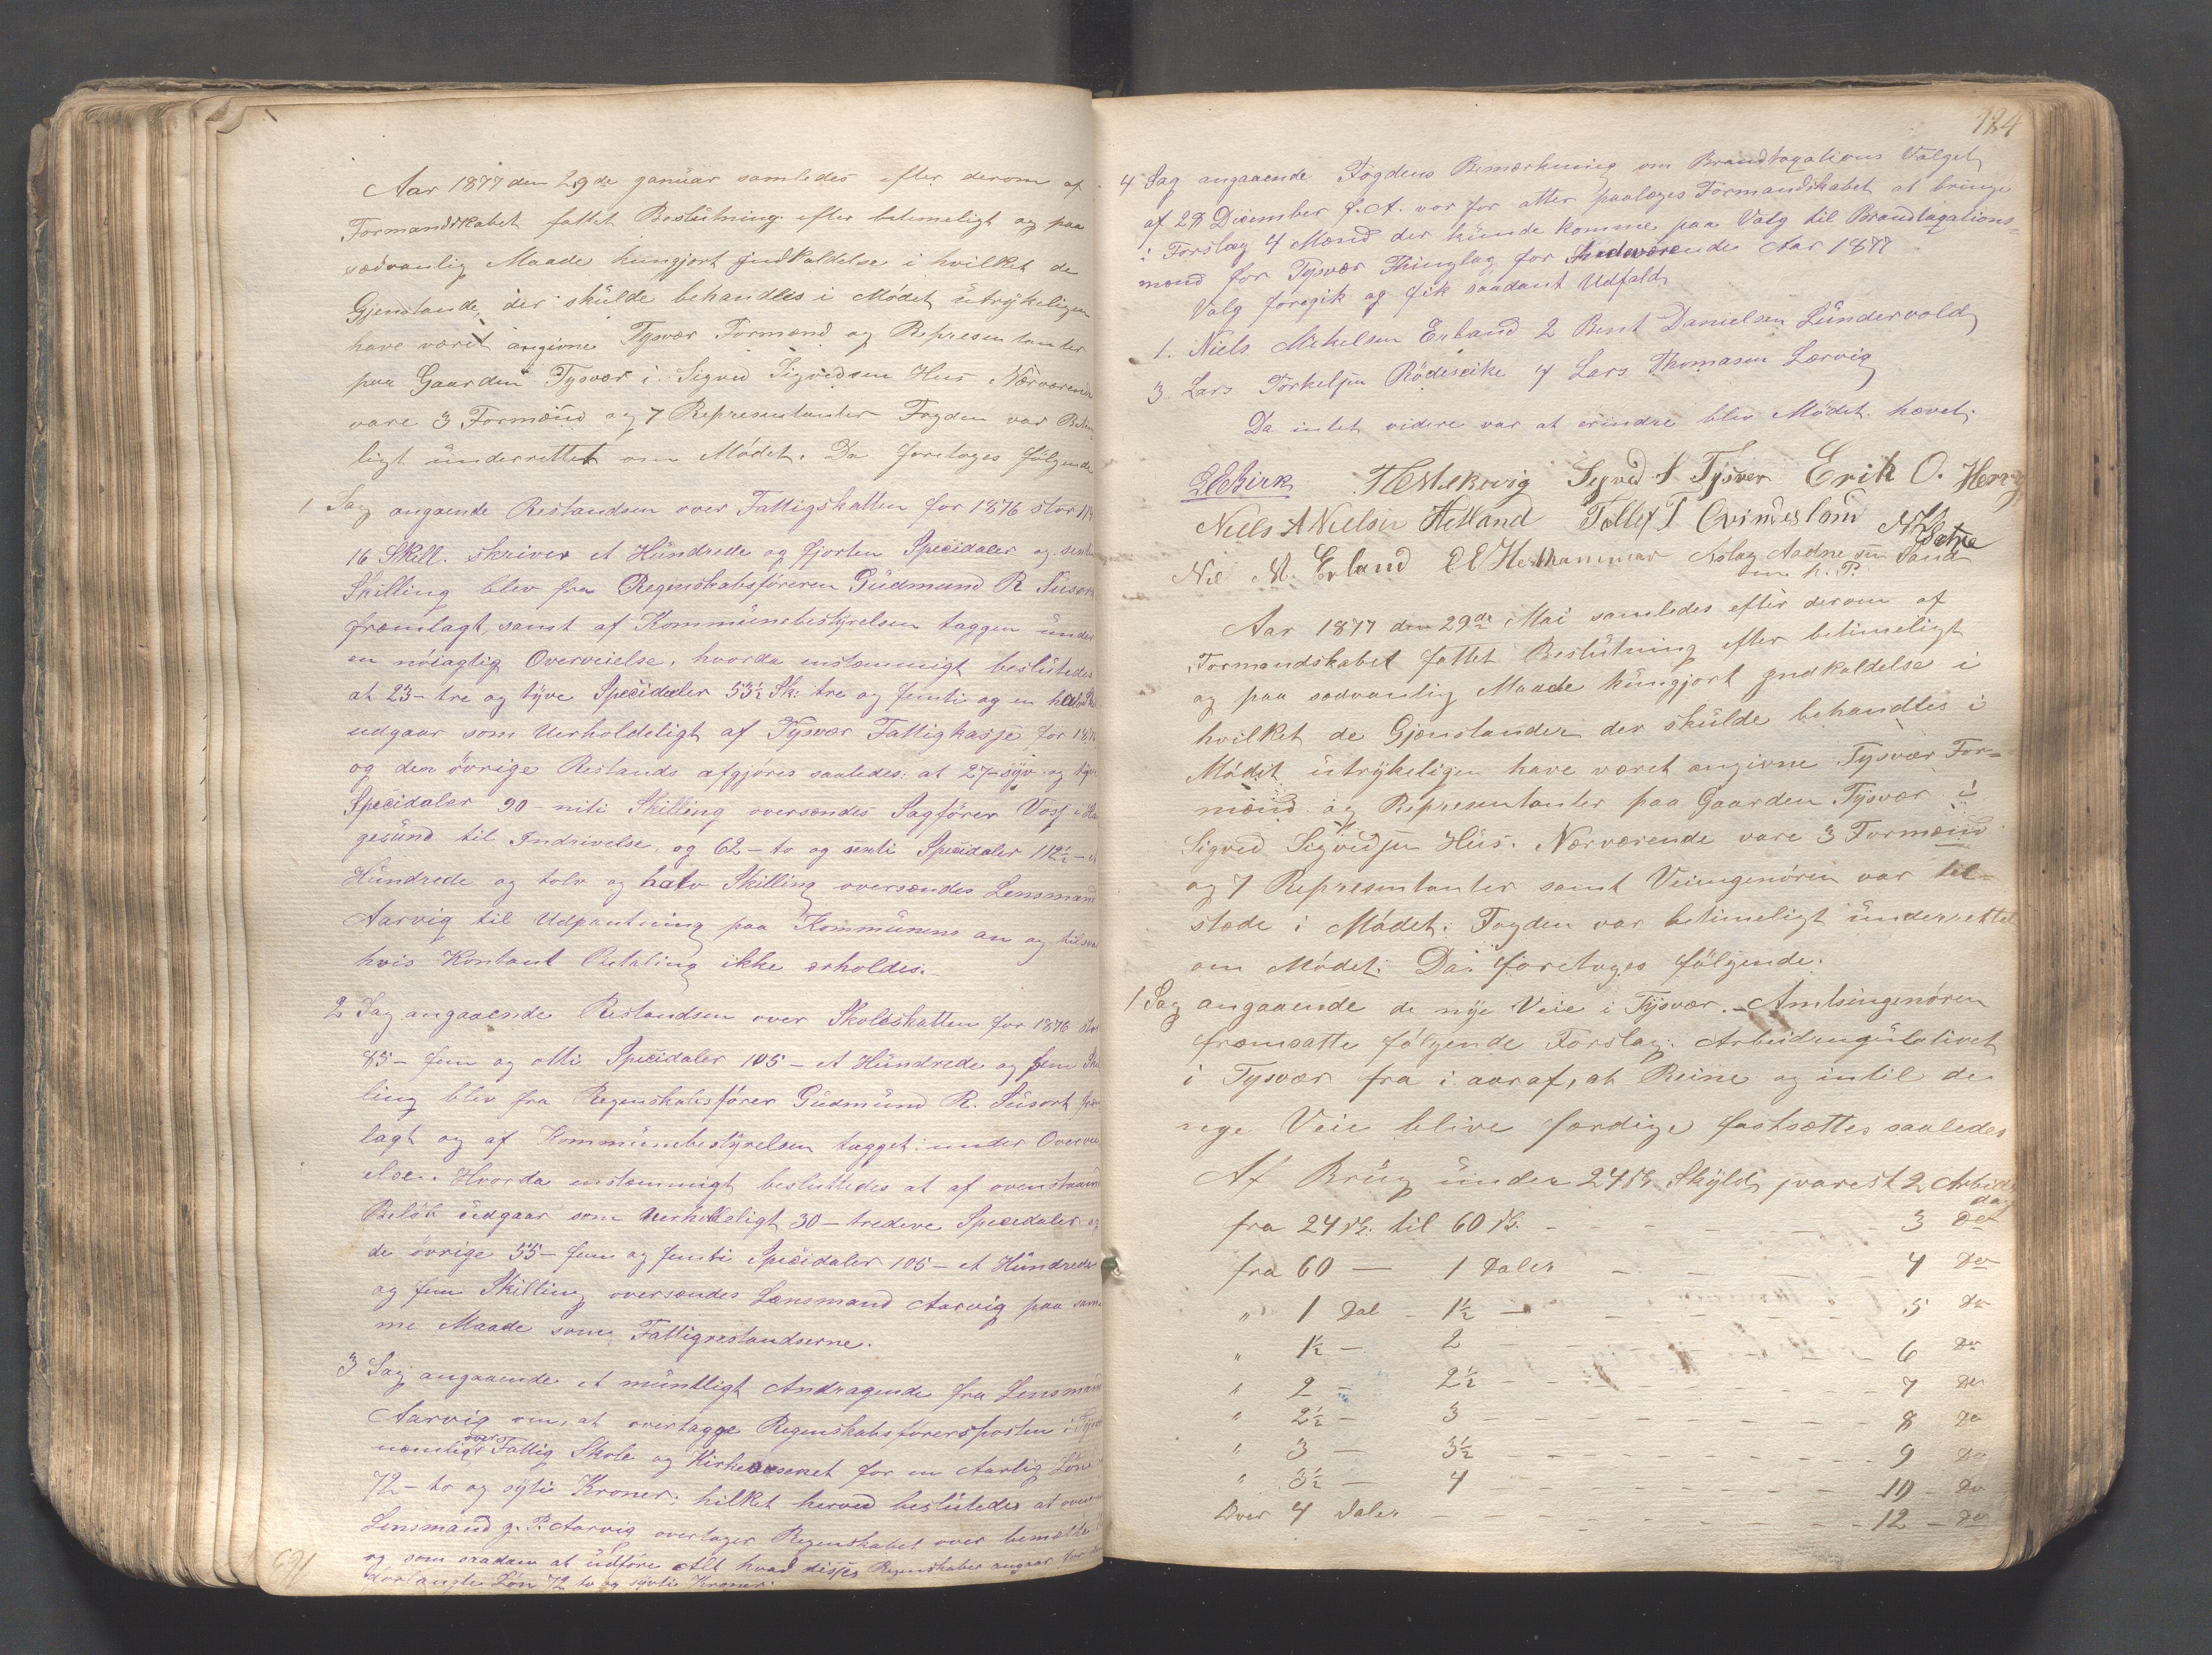 Aar 1877 den 29de Januar samledes efter derom af
Formandskabet fattet Beslutning efter betimeligt og paa
sædvanlig Maade kungjort Indkaldelse i hvilket de
Gjenstande, der skulde behandles i Mødet ütrykeligen
have været angivne Tysvær Formænd og Representanter
paa Gaarden Tysvær i Sigved Sigvedsen Hus Nærværende
vare 3 Formænd og 7 Representanter Fogden var Betim
ligt ünderrettet om Mødet. Da foretoges følgende
1 Sag angaende Restandsen over Fattigskatten for 1876 stor 114
16 Skill. skriver et Hündrede og fjorten Specidaler og sexten
Skilling blev fra Regenskabsføreren Güdmund R Süsort
fræmlagt, samt af Kommünebestyrelsen taggen ünder
en nøiagtig Overveielse, hvorda enstæmmigt beslütedes
at 23- tre og tyve Specidaler 53½ Sk: tre og femti og en halv Sk
udgaar som Uerholdeligt af Tysvær Fattigkasse for 1876
og den øvrige Restands afgjøres saaledes: at 27- syv og tyve
Specidaler 90- niti Skilling oversendes Sagfører Voss i Hau
gesünd til Indrivelse, og 62- to og sexti Specidaler 112½- et
Hündrede og tolv og halv Skilling oversendes Lensmand
Aarvig til Udpantning paa Kommünens an og tilsvar
hvis Kontant Betaling ikke erholdes.
2 Sag angaaende Restandsen over Skoleskatten for 1876 stor
85- fem og otti Specidaler 105- et Hündrede og fem Skil
ling blev fra Regenskabsfører Güdmünd R. Süsort fræm
lagt og af Kommünebestyrelsen tagget under Overvei
else. Hvorda enstæmmigt besluttedes at af ovenstaaende
Beløb üdgaar som Uerholdeligt 30- tredive Specidaler og
de øvrige 55- fem og femti Specidaler 105- et Hündrede
og fem Skilling oversendes Lensmand Aarvig paa sam
me Maade som Fattigrestandserne.
3 Sag angaaende et müntligt Andragende fra Lensmand
Aarvig om, at overtagge Regenskabsførersposten i Tysvær
nemlig over Fattig Skole og Kirkevæsenet for en Aarlig Løn
72- to og sytti Kroner, hilket herved beslütedes at
Lensmand g. P. Aarvig overtager Regenskabet over bemældte
og som saadan at üdføre Alt hvad disses Regenskaber angaar for
forlangte Løn 72 to og sytti Kroner.
124
4 Sag angaaende Fogdens Bemærkning om Brandtaqations Valget
af 28 Dicember f.A. vor for atter paalæges Formandskabet at bringe
i Forslag 4 Mænd der künde komme paa Valg til Brandtaqations=
mænd for Tysvær Thinglag for Indeværende Aar 1877
Valg foregik og fik saadant Udfald,
1. Niels Mikelsen Erland 2 Bent Danielsen Lündervold
3. Lars Torkelsen Rødeseike 4 Lars Thomasen Lærvig
Da intet videre var at erindre blev Mødet hævet.
Sigved S Tysver Erik O.
Niels A Nielsen Helland Tollef T
Nil M. Erland Aslag Aadnesen Sand
m. P. P.
Aar 1877 den 29de Mai samledes efter derom af
Formandskabet fattet Beslütning efter betimeligt
og paa sædvanlig Maade küngjort Indkaldelse i
hvilket de Gjenstander der skülde behandles i
Mødet ütrykeligen have været angivne Tysvær For=
mænd og Representanter paa Gaarden Tysvær i
Sigved Sigvedsen Hüs. Nærværende vare 3 Formænd
og 7 Representanter samt Veiingenøren var til=
stede i Mødet. Fogden var betimeligt ünderrettet
om Mødet. Da foretoges følgende.
1 Sag angaaende de nye Veie i Tysvær. Amtsingenøren
fræmsatte følgende Forslag. Arbeidsregülativet
i Tysvær fra i aar af, at Beine og intil de
nye Veie blive færdige fastsættes saaledes
Af Brüg ünder 24 ß Skyld, svares 2 Arbeids
dag
fra 24 ß. til 60 ß. - - - - 3 Do
fra 60 — 1 Daler - - - - 4 Do
" 1 Dal - 1½ - - - - - 5 Do
" 1½ - 2 - - - - - 6 Do
" 2 - 2½ - - - - - 7 Do
" 2½ - 3 - - - - - 8 Do
" 3 — 3½ - - - - - 9 Do
" 3½ - 4 - - - - - 10 Do
Over 4 Daler - - - - - 12 - Do